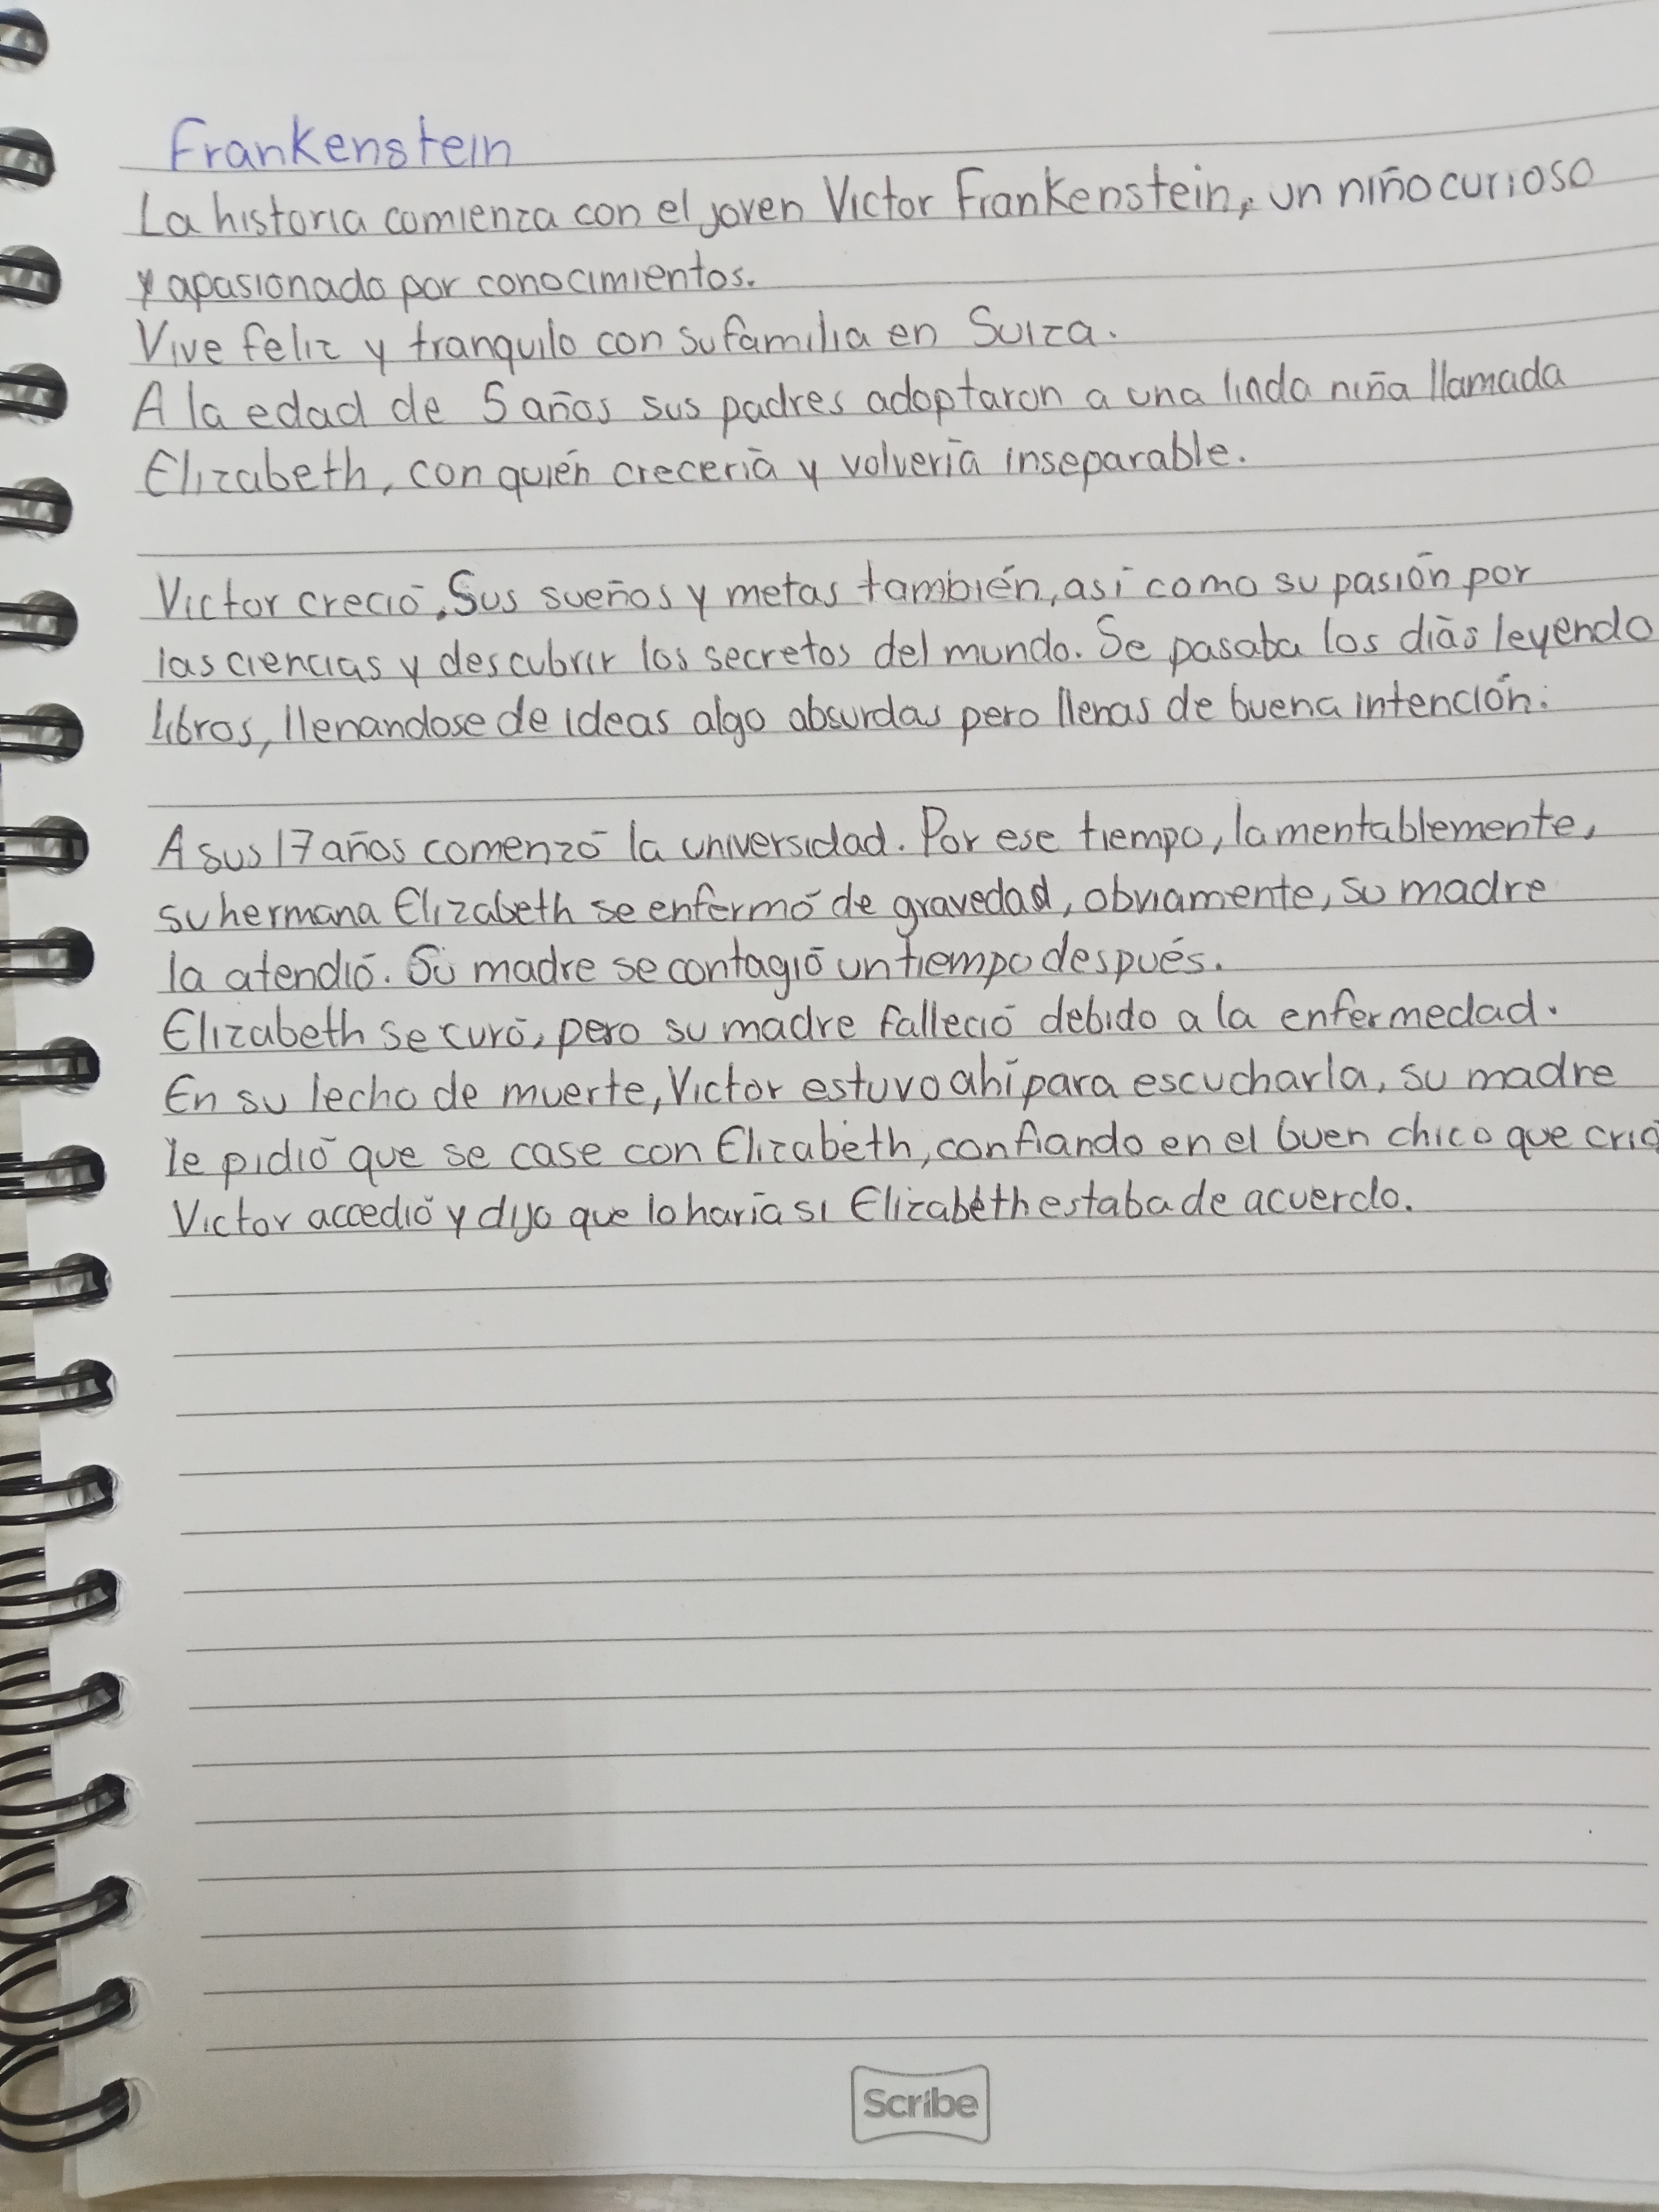 Frankenstein
La historia comienza con el joven Victor Frankenstein, un niño curioso
y apasionado por conocimientos.
Vive feliz y tranquilo con su familia en Suiza.
A la edad de 5 años sus padres adoptaron a una linda niña llamada
Elizabeth, con quién crecería y volvería inseparable.
Victor creció. Sus sueños y metas también, así como su pasión por
las ciencias y descubrir los secretos del mundo. Se pasaba los días leyendo
libros, llenandose de ideas algo absurdas pero llenas de buena intención.
A sus 17 años comenzó la universidad. Por ese tiempo, lamentablemente,
su hermana Elizabeth se enfermó de gravedad, obviamente, su madre
la atendió. Su madre se contagió un tiempo después.
Elizabeth se curó, pero su madre falleció debido a la enfermedad.
En su lecho de muerte, Victor estuvo ahí para escucharla, su madre
le pidió que se case con Elizabeth, confiando en el buen chico que crió
Victor accedió y dijo que lo haría si Elizabeth estaba de acuerdo.
Scribe